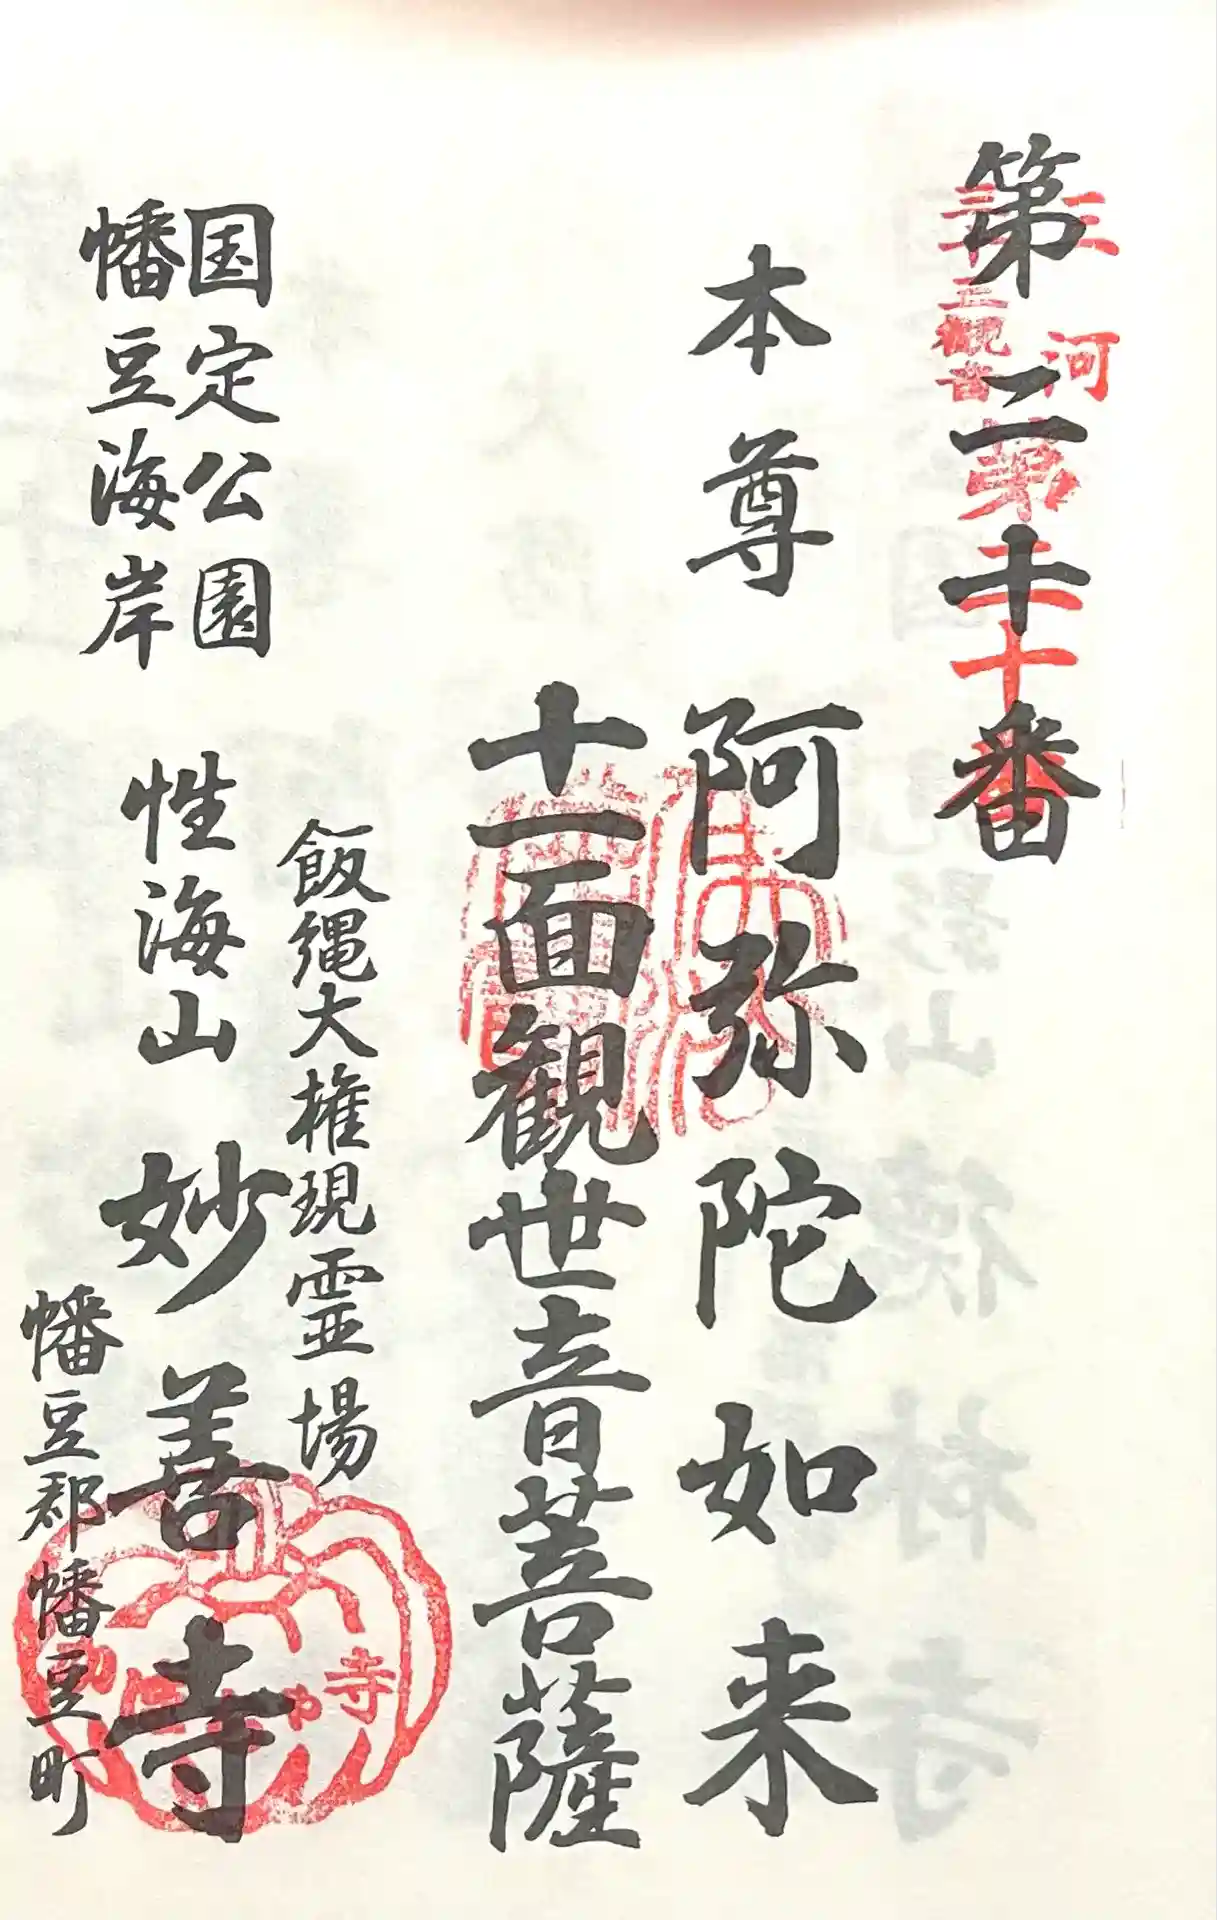 第二十番
三河
三十三観音
第二十番
本尊 阿弥陀如来
十一面観世音菩薩
飯縄大権現霊場
国定公園
幡豆海岸
性海山 妙善寺
幡豆郡幡豆町
寺